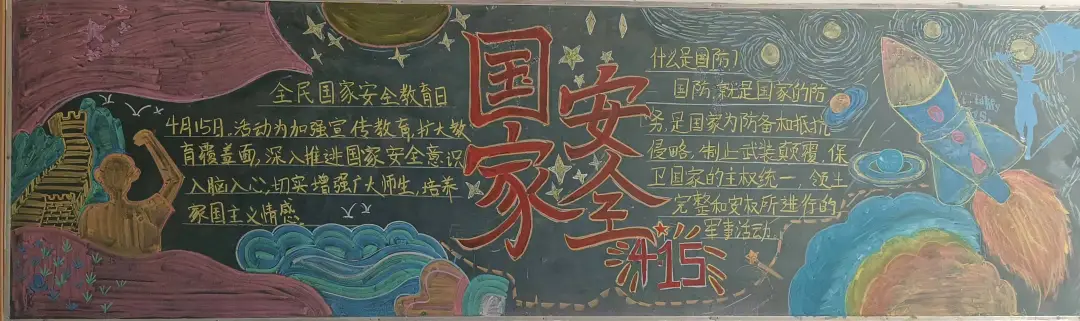 全民国家安全教育日
4月15日,活动为加强宣传教育,扩大教
育覆盖面,深入推进国家安全意识
入脑入心,切实增强广大师生,培养
家国主义情感
国家
安全
4 15
什么是国防?
国防,就是国家的防
务,是国家为防备和抵抗
侵略,制止武装颠覆,保
卫国家的主权统一,领土
完整和安权所进行的
军事活动。